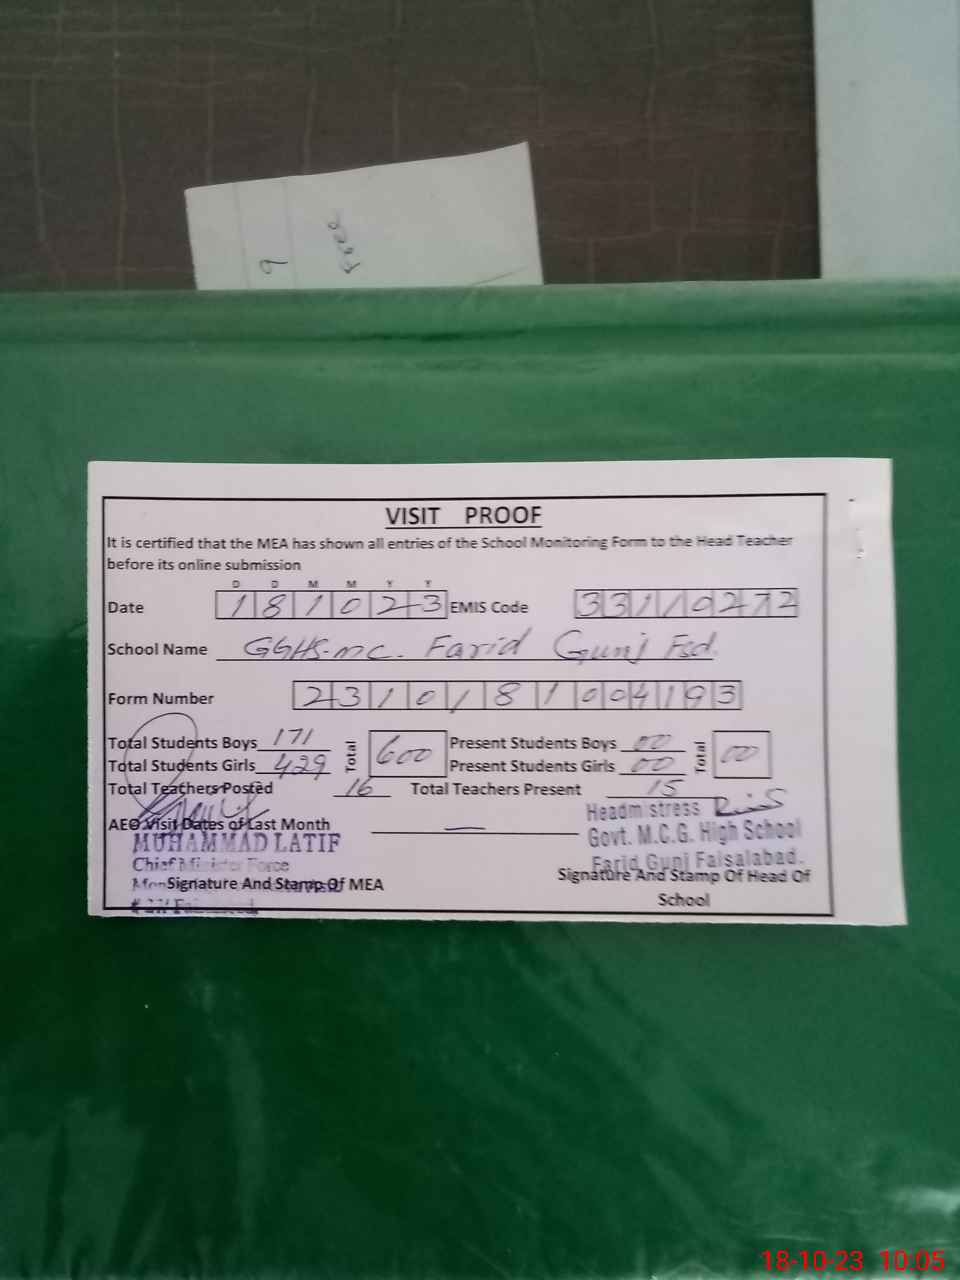 VISIT PROOF
It is certified that the MEA has shown all entries of the School Monitoring Form to the Head Teacher
before its online submission
D D M M Y Y
Date 181023 EMIS Code 33110272
School Name GGHS-MC. Farid Gunj Fsd.
Form Number 2310181004193
Total Students Boys 171 Total 600 Present Students Boys 00 Total 00
Total Students Girls 429 Present Students Girls 00
Total Teachers Posted 16 Total Teachers Present 15
AEO Visit Dates of Last Month —
Headmistress
Govt. M.C.G. High School
Farid Gunj Faisalabad.
MUHAMMAD LATIF
Chief Minister Force
Signature And Stamp Of MEA
Signature And Stamp Of Head Of
School
18-10-23 10:05